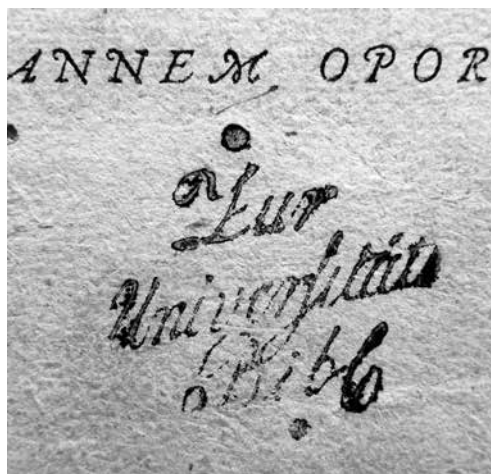 ANNEM OPOR
Zur
Universität
Bibl